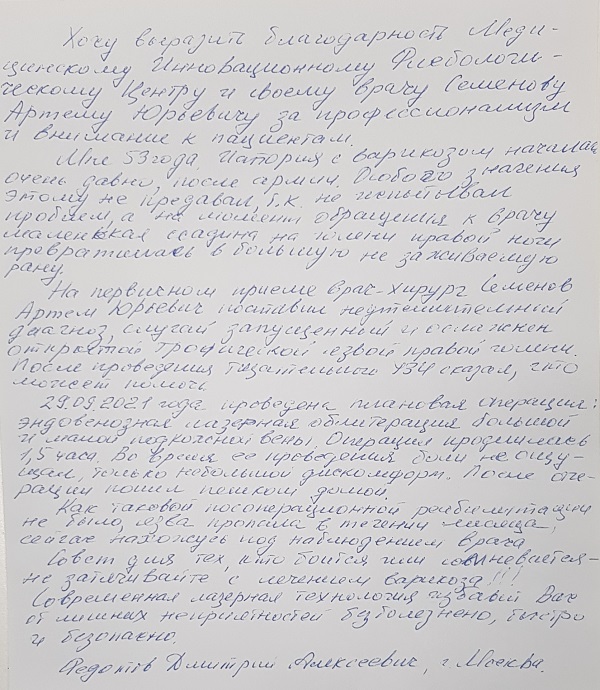 Хочу выразить благодарность Меди-
цинскому Инновационному Флебологи-
ческому Центру и своему врачу Семенову
Артему Юрьевичу за профессионализм
и внимание к пациентам.
Мне 53 года. История с варикозом началась
очень давно, после армии. Особого значения
этому не предавал, т.к. не испытывал
проблем, а на момент обращения к врачу
маленькая ссадина на голени правой ноги
превратилась в большую не заживаемую
рану.
На первичном приеме врач-хирург Семенов
Артем Юрьевич поставил неутешительный
диагноз, случай запущенный и осложнен
открытой трофической язвой правой голени.
После проведения тщательного УЗИ сказал, что
может помочь.
29.09.2021 года проведена плановая операция:
эндовенозная лазерная облитерация большой
и малой подкожной вены. Операция продлилась
1,5 часа. Во время ее проведения боли не ощу-
щал, только небольшой дискомфорт. После опе-
рации пошел пешком домой.
Как таковой посоперационной реабилитации
не было, язва пропала в течении месяца,
сейчас нахожусь под наблюдением врача
Совет для тех, кто боится или сомневается-
не затягивайте с лечением варикоза!!!
Современная лазерная технология избавит Вас
от лишних неприятностей безболезнено, быстро
и безопасно.
Федотов Дмитрий Алексеевич, г. Москва.